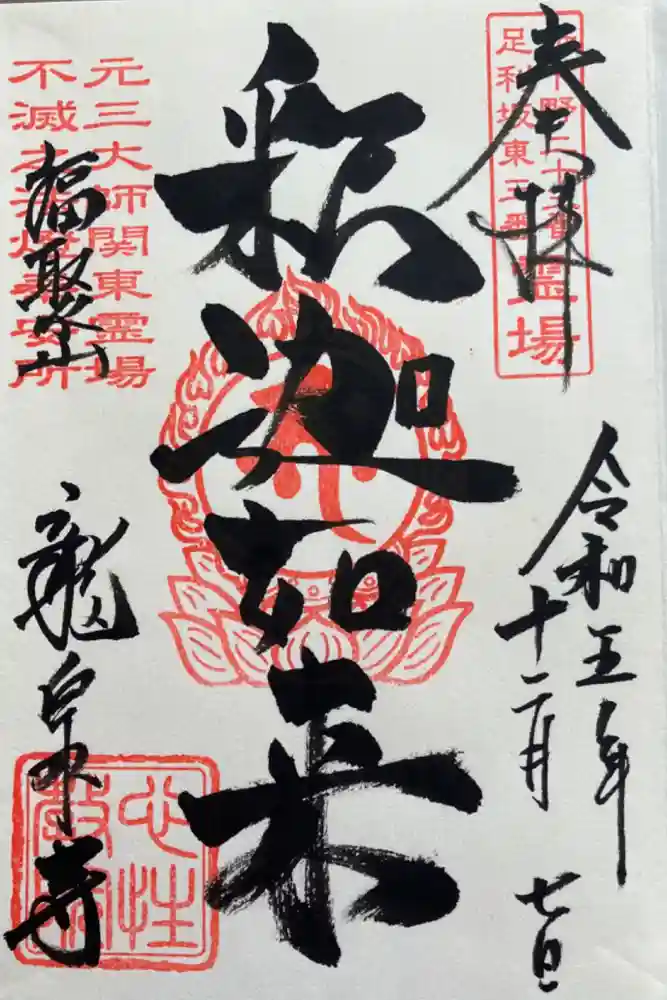 奉拝
足利坂東三番霊場
令和五年
十二月七日
釈迦如来
元三大師関東霊場
不滅之法燈奉安所
福聚山
龍泉寺
心性